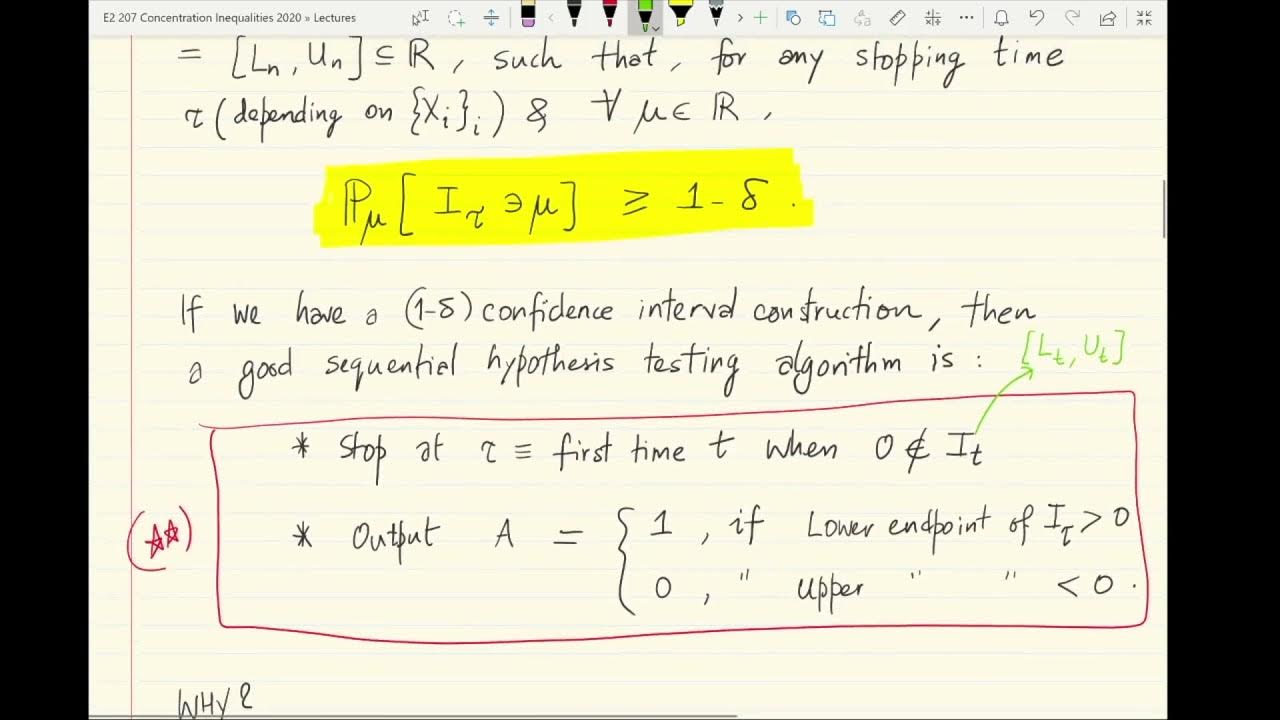 E2 207 Concentration Inequalities 2020 » Lectures
= [Lₙ, Uₙ] ⊆ ℝ, such that, for any stopping time
τ (depending on {Xᵢ}ᵢ) & ∀ μ ∈ ℝ,
ℙ_μ [ I_τ ∋ μ ] ≥ 1 - δ.
If we have a (1-δ) confidence interval construction, then
a good sequential hypothesis testing algorithm is :
[Lₜ, Uₜ]
* Stop at τ ≡ first time t when 0 ∉ Iₜ
(☆☆)
* Output A = { 1, if Lower endpoint of I_τ > 0
0, " Upper " " < 0.
WHY?